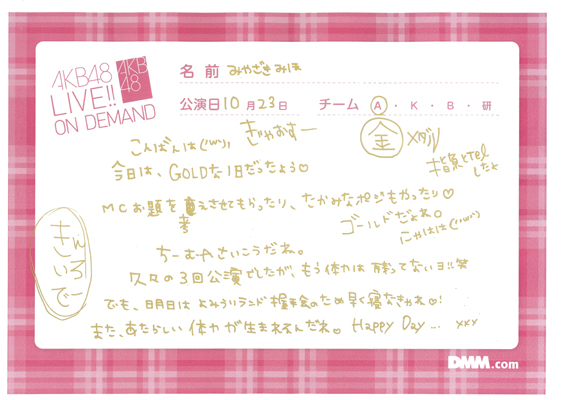 AKB48
LIVE!!
ON DEMAND
AKB
48
名前 みやざきみほ
公演日 10月23日 チーム A・K・B・研
こんばんは(´ω`)。 ぎゃおすー
金 メダル
今日は、GOLDな1日だったよう♡
指原とTel
したよ
MCお題を考えさせてもらったり、たかみなポジもやったり♡
考
ゴールドだよね。
にゃはは(´ω`)
ちーむAさいこうだね。
久々の3回公演でしたが、もう体力は残ってないヨ!!笑
でも、明日はよみうりランド握手会のため早く寝なきゃね♡!
また、あたらしい体力が生まれるんだね。 Happy Day... xxx
きんいろでー
DMM.com